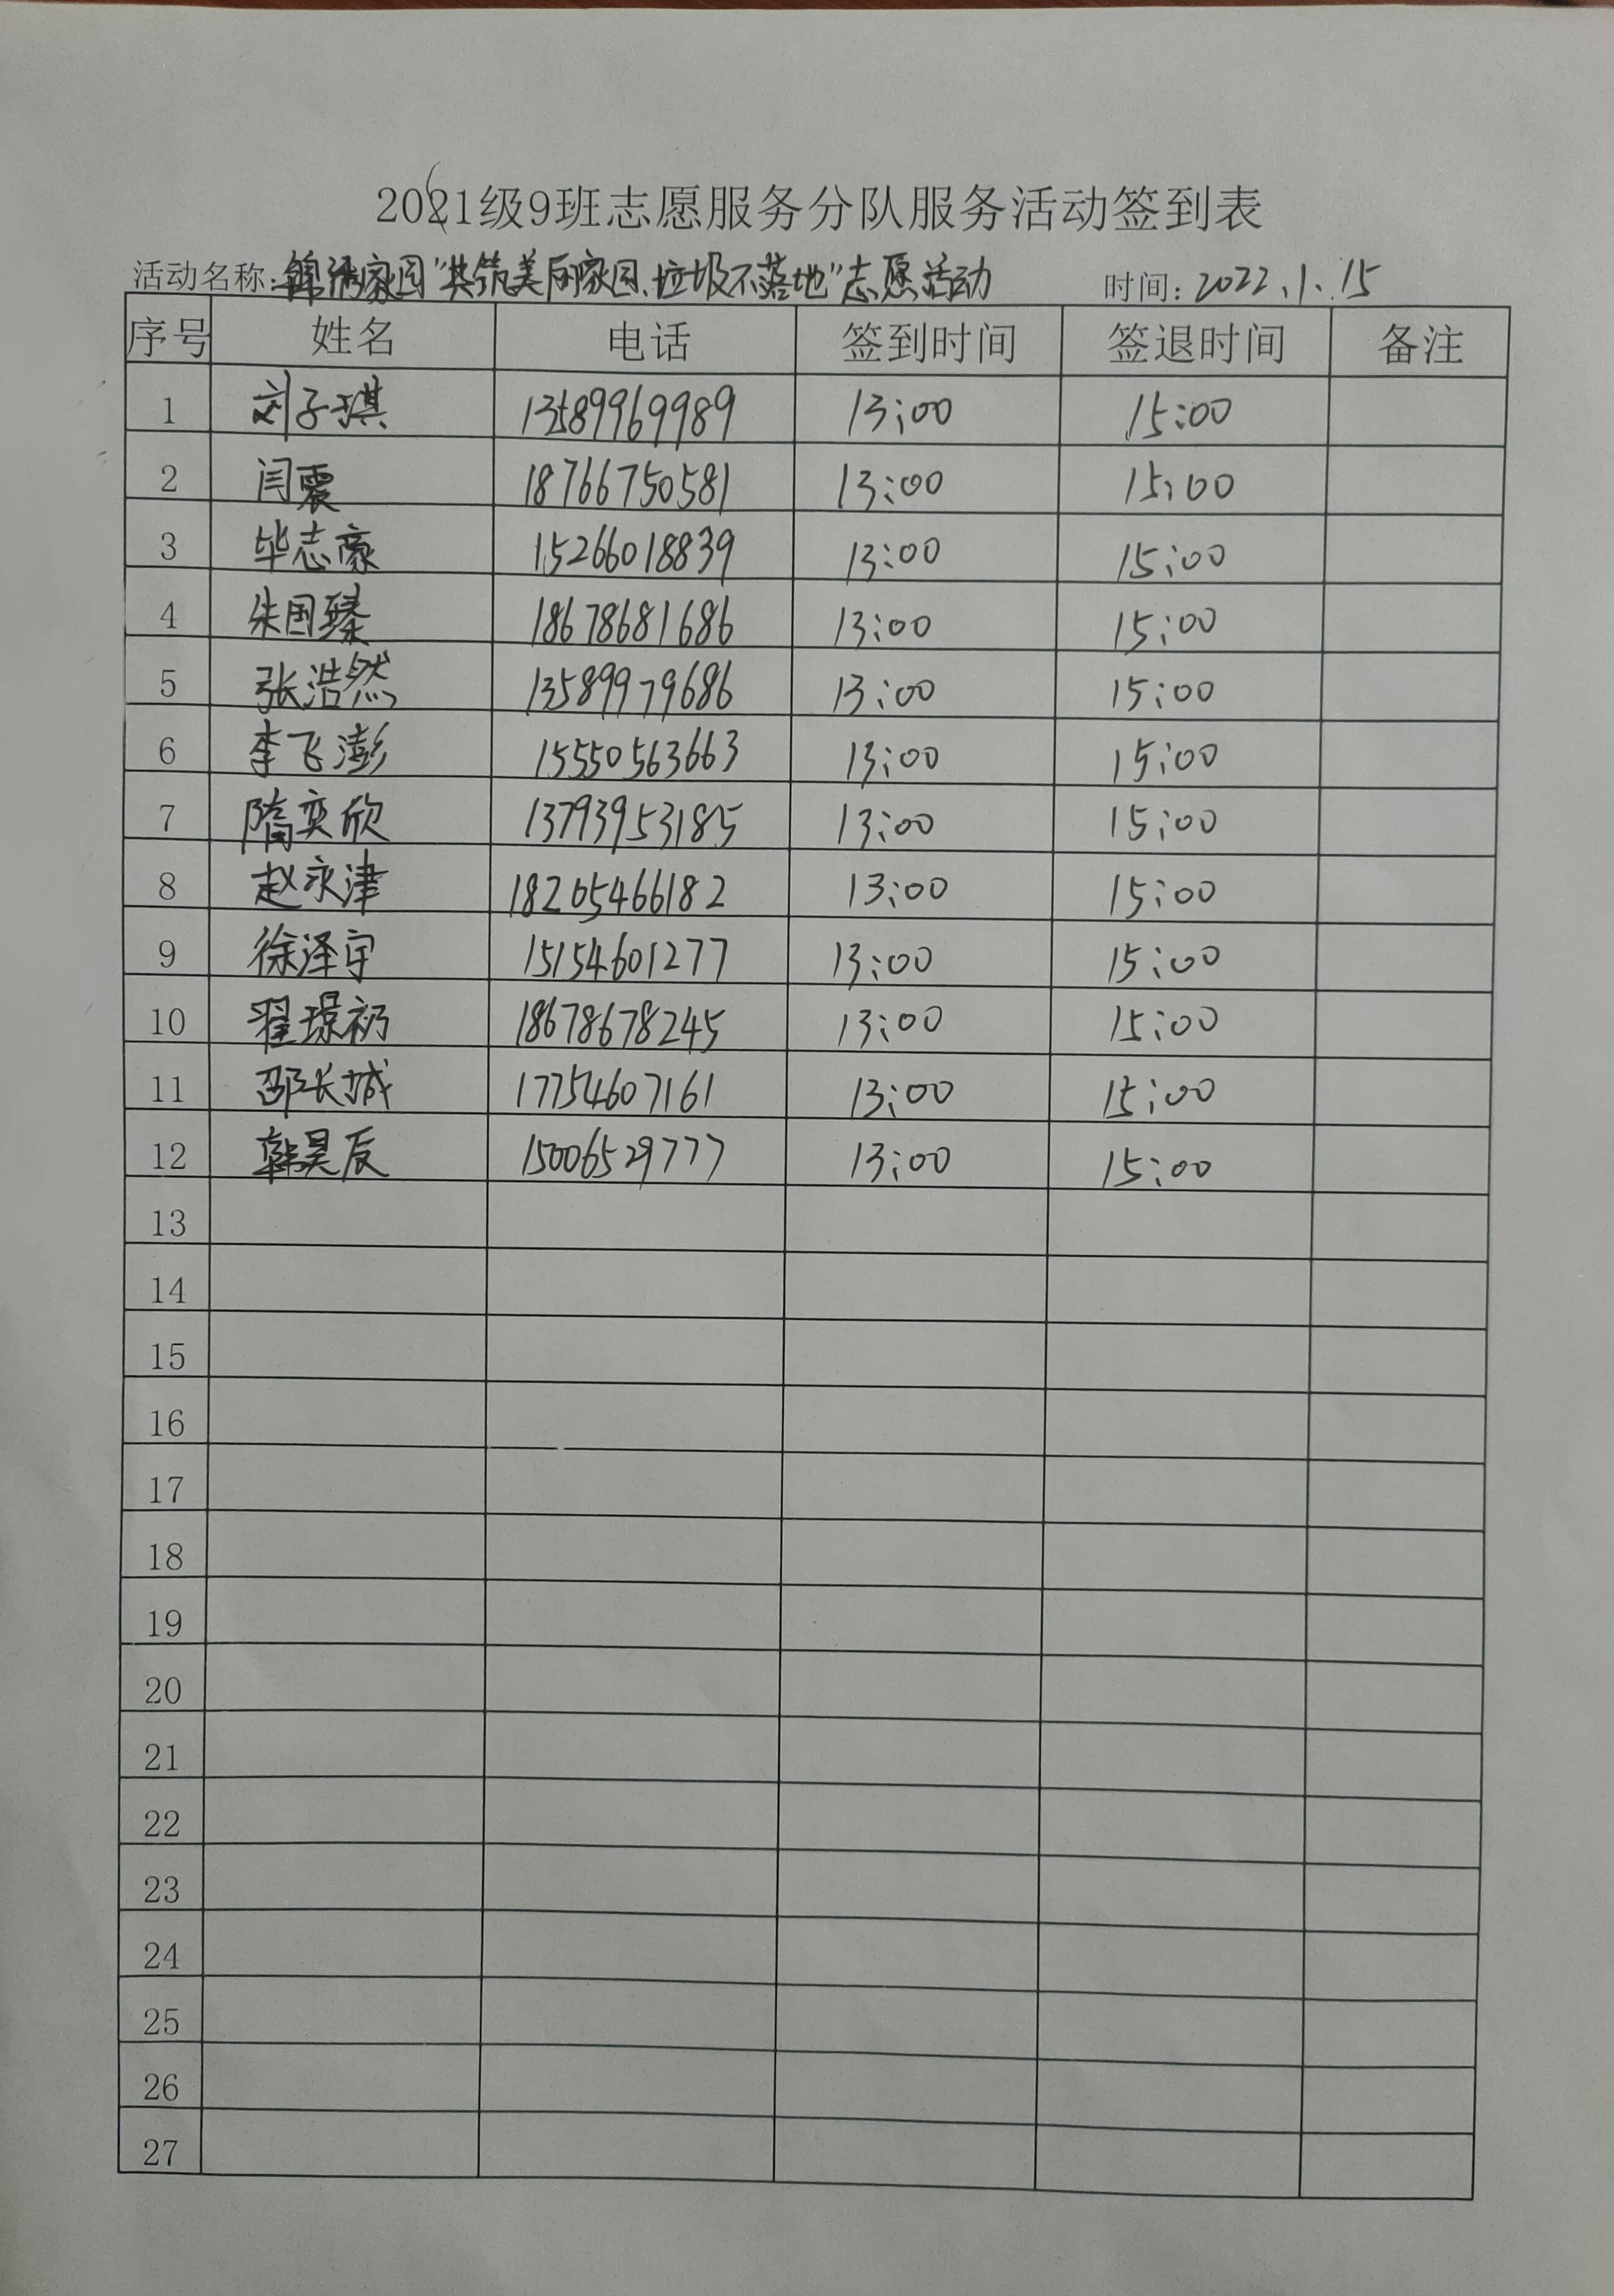 2021级9班志愿服务分队服务活动签到表
活动名称:锦湖家园"共筑美丽家园、垃圾不落地"志愿活动 时间:2022.1.15
序号 姓名 电话 签到时间 签退时间 备注
1 刘子琪 13589969989 13:00 15:00
2 闫震 18766750581 13:00 15:00
3 毕志豪 15266018839 13:00 15:00
4 朱国臻 18678681686 13:00 15:00
5 张浩然 13589979686 13:00 15:00
6 李飞澎 15550563663 13:00 15:00
7 隋奕欣 13793953185 13:00 15:00
8 赵永津 18205466182 13:00 15:00
9 徐泽宇 15154601277 13:00 15:00
10 翟璟礽 18678678245 13:00 15:00
11 邵长城 17754607161 13:00 15:00
12 韩昊辰 15006529777 13:00 15:00
13
14
15
16
17
18
19
20
21
22
23
24
25
26
27